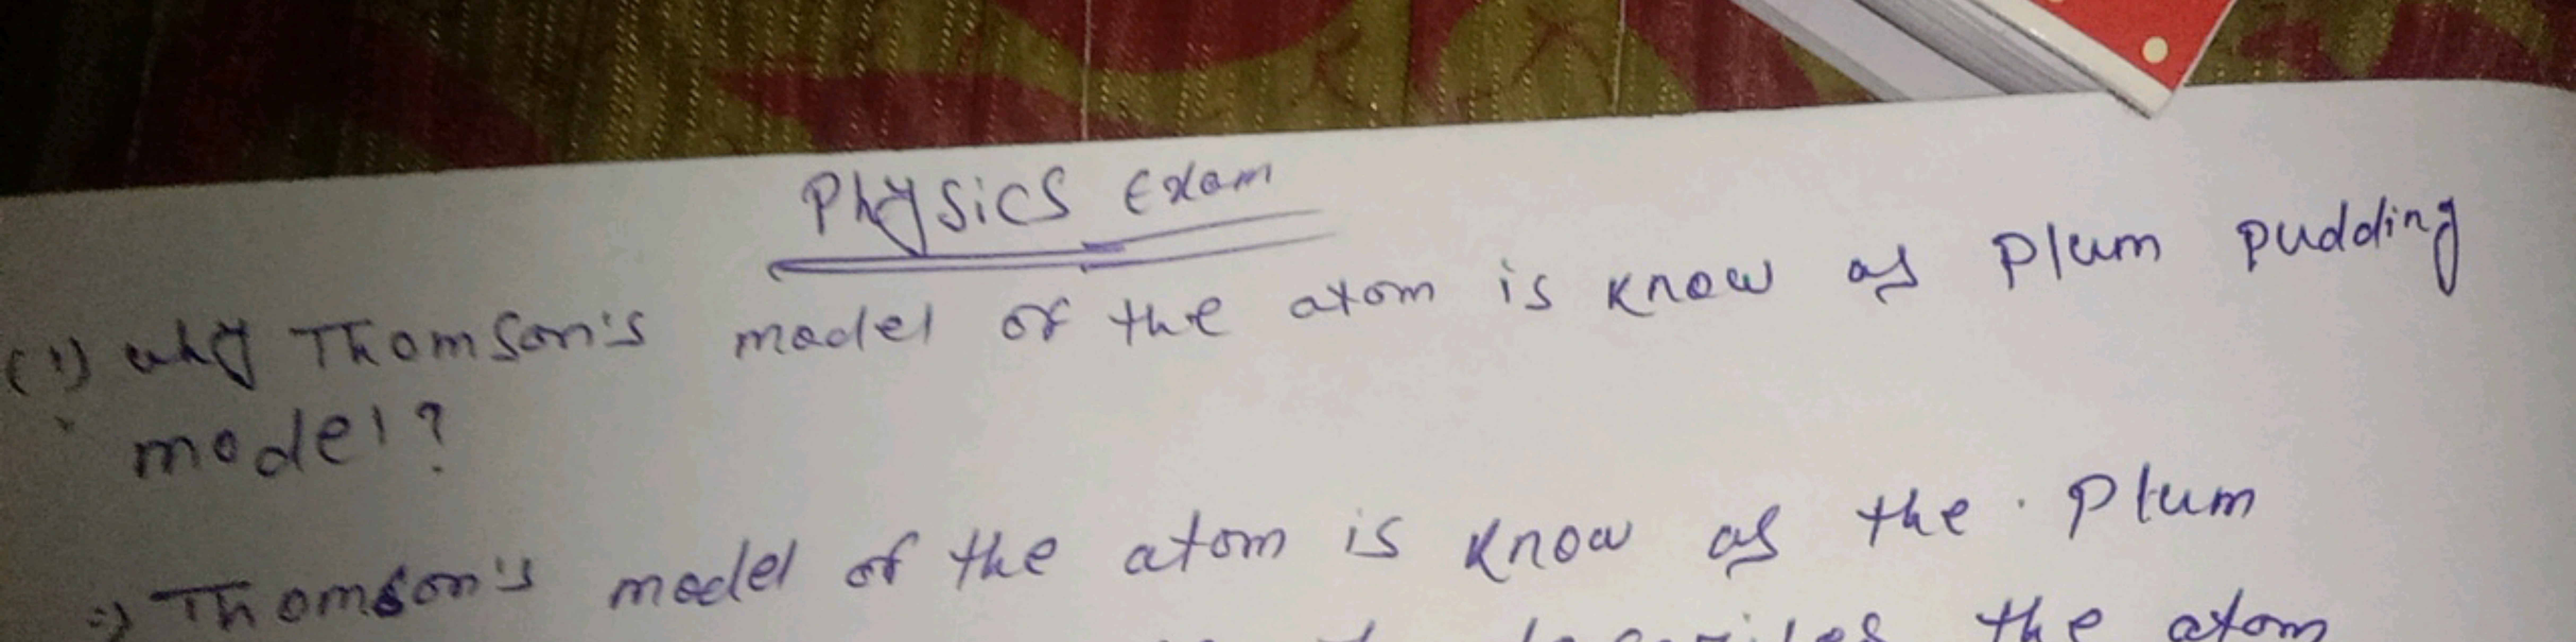 Physics Exam
(1) why Thomson's model of the atom is know as Plum pudding
model?
⇒ Thomson's model of the atom is know as the Plum
the atom